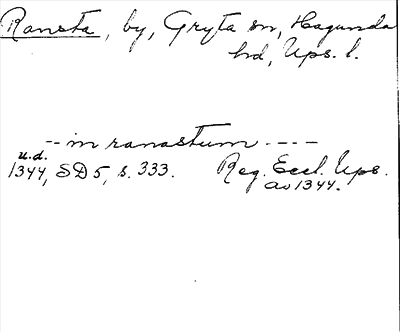 Ransta, by, Gryta sn, Hagunda
hd, Ups. l.
-- in ranastum ----
u.d.
1344, SD 5, s. 333. Reg. Eccl. Ups.
av 1344.